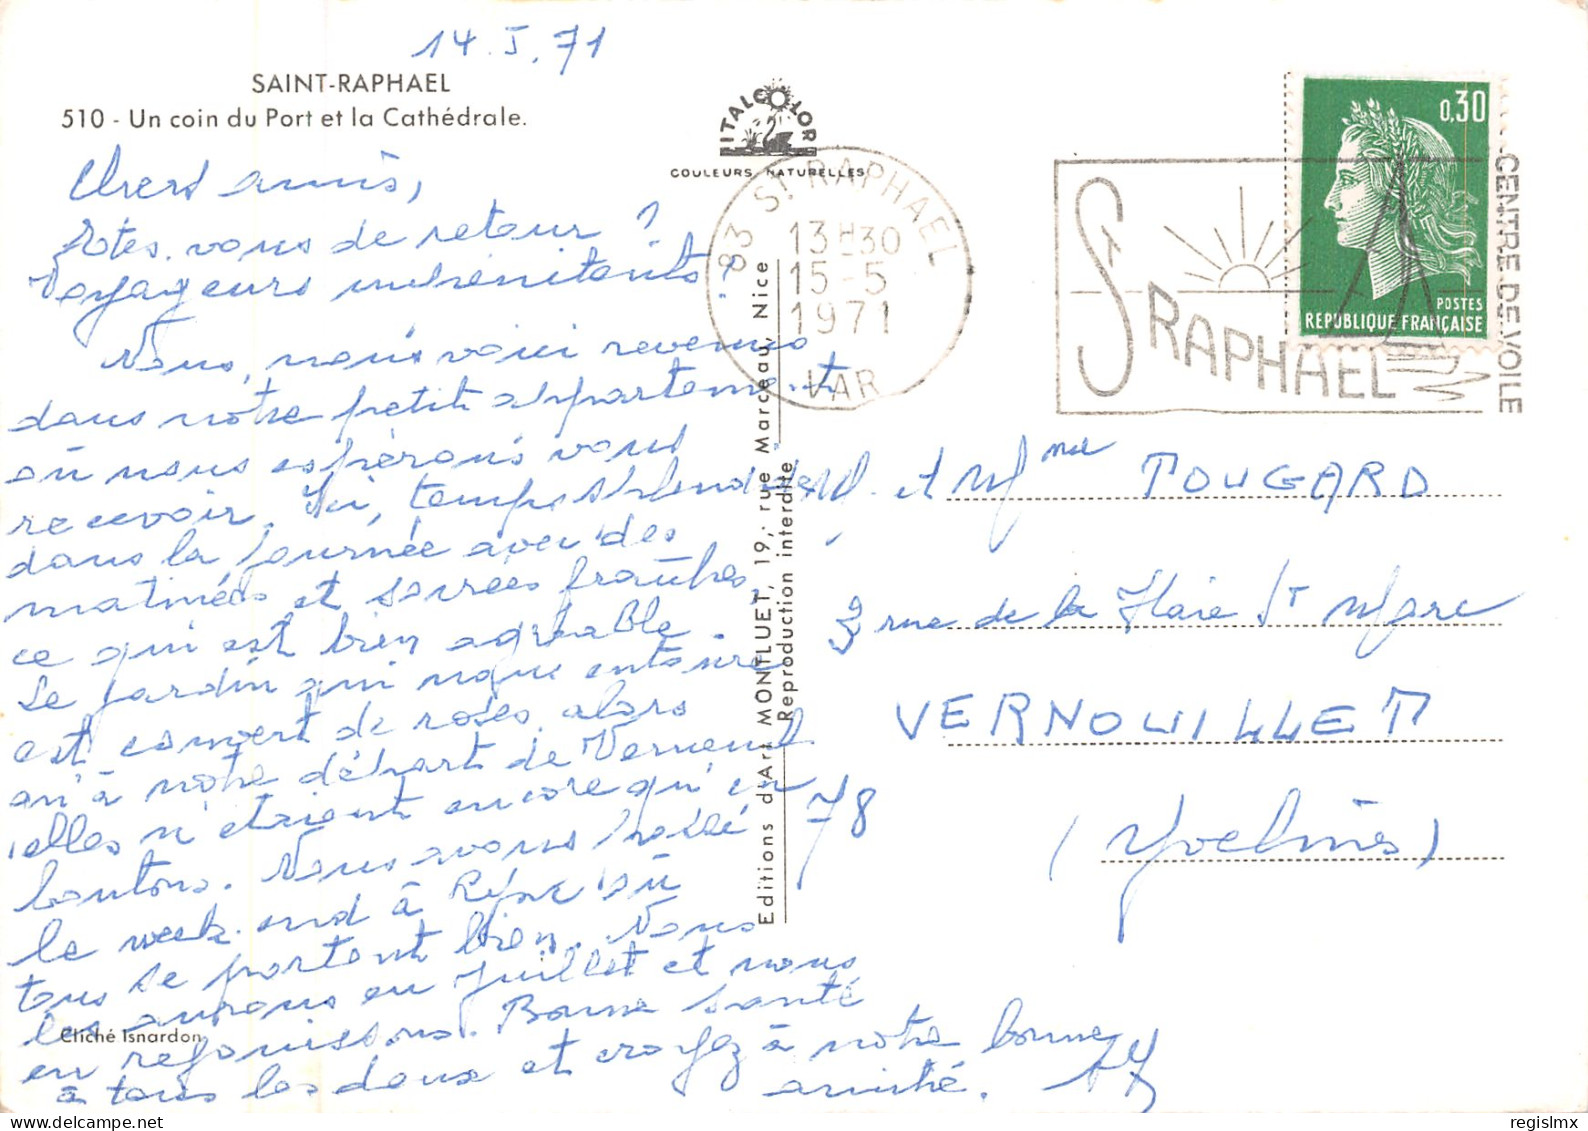 14.5.71
SAINT-RAPHAEL
510 - Un coin du Port et la Cathédrale.
ITALCOLOR
COULEURS NATURELLES
Chers amis,
Êtes-vous de retour ?
Voyageurs impénitents ?
Nous, nous voici revenus
dans notre petit appartement
où nous espérons vous
recevoir. Ici, temps splendide
dans la journée avec des
matinées et soirées fraîches
ce qui est bien agréable.
Le jardin qui nous entoure
est couvert de roses alors
qu'à notre départ de Verneuil
elles n'étaient encore qu'en
boutons. Nous avons passé
le week-end à où
tous se portent bien. Nous
les aurons en juillet et nous
en réjouissons. Bonne santé
à tous les deux et croyez à notre bonne
amitié.
Cliché Isnardon
Editions d'Art MONTLUET, 19, rue Marceau, Nice
Reproduction interdite
83 ST RAPHAEL
13H30
15-5
1971
VAR
ST RAPHAEL
CENTRE DE VOILE
0,30
POSTES
REPUBLIQUE FRANÇAISE
M. et Mme TOUGARD
3 rue de la Haie St Marc
VERNOUILLET
78
(Yvelines)